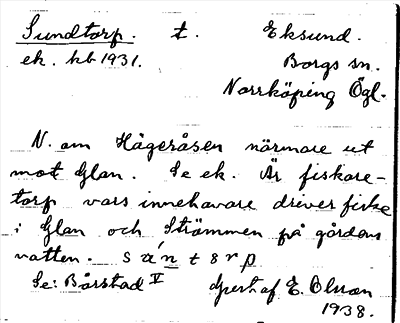 Sundtorp. t. Eksund.
ek. kb 1931. Borgs sn.
Norrköping Ögl.
N. om Hågeråsen närmare ut
mot Glan. Se ek. Är fiskare-
torp vars innehavare driver fiske
i Glan och Strömmen på gårdens
vatten. sántsrp
Se: Bårstad V Upert af E. Olsson
1938.